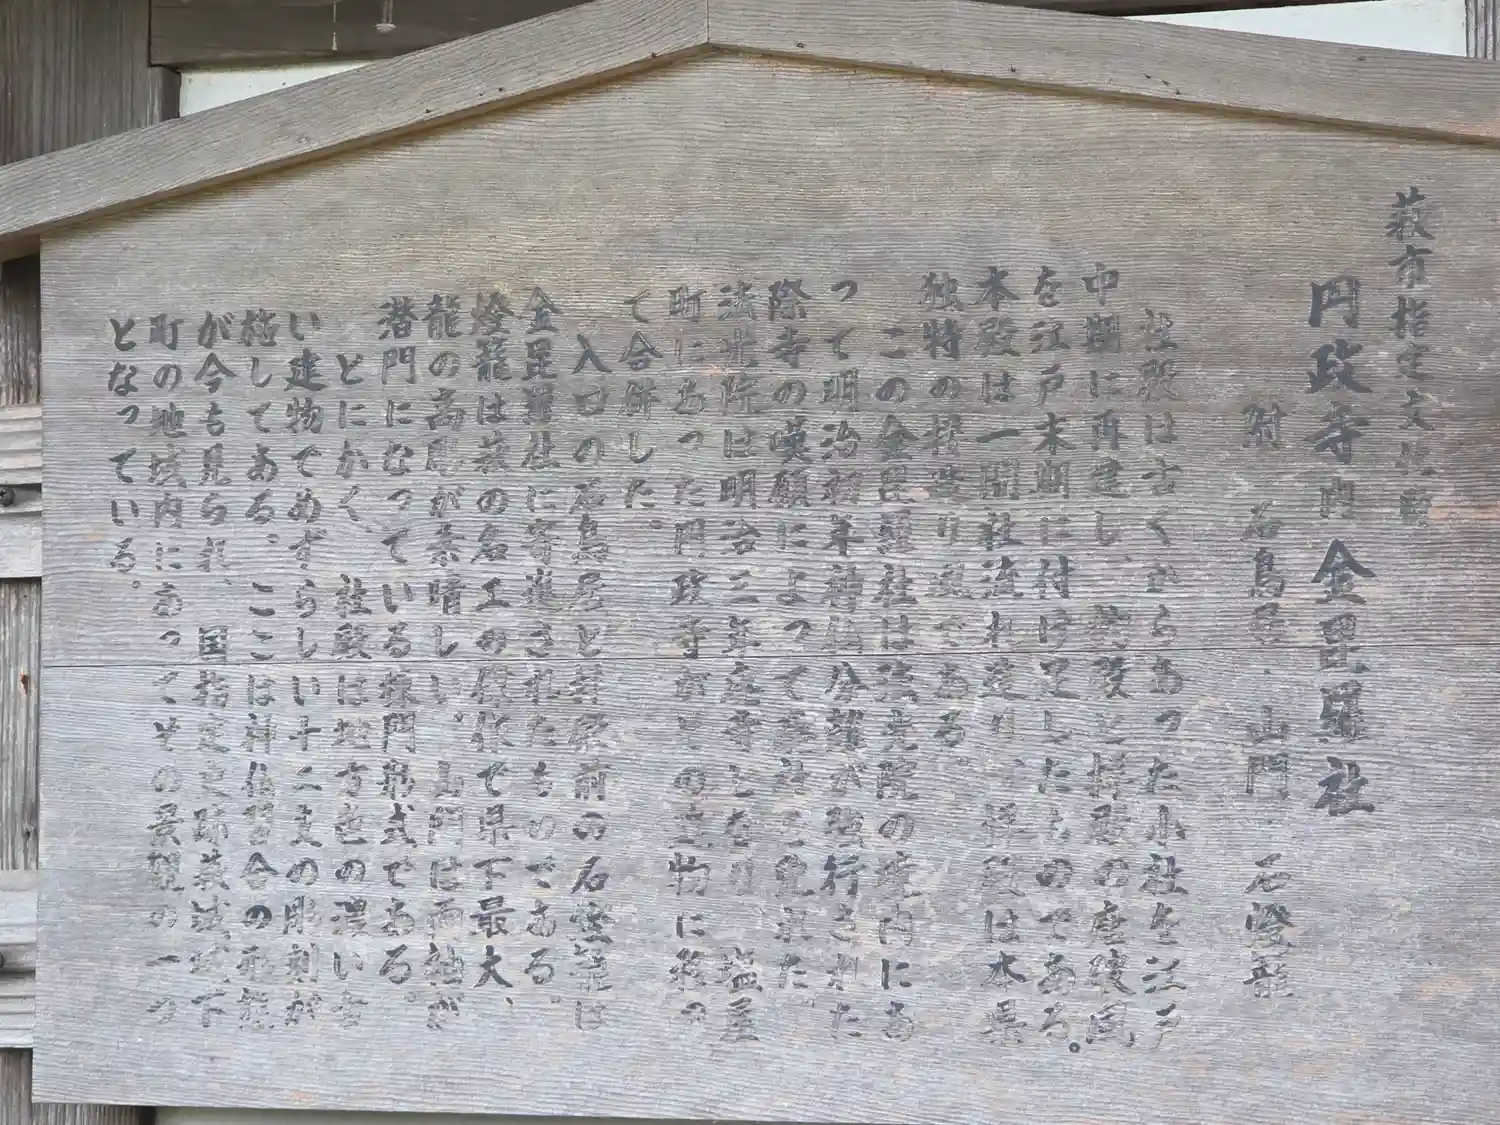 萩市指定文化財
円政寺内金毘羅社
附 石鳥居・山門・石燈籠
社殿は古くからあった小社を江戸
中期に再建し、拝殿の唐破風
を江戸末期に付け足したものである。
本殿は一間社流れ造り、拝殿は本県
独特の様式である。
この金毘羅社は法光院の境内にあ
って明治初年神仏分離が強行された
際寺の嘆願によって廃社を免れた。
法光院は明治三年廃寺となり、塩屋
町にあった円政寺がその建物に移っ
て合併した。
入口の石鳥居と拝殿前の石燈籠は
金毘羅社に寄進されたものである。
燈籠は萩の名工の傑作で県下最大、
龍の高彫が素晴しい。山門は両袖が
潜門になっている楼門形式である。
とにかく、社殿は地方色の濃い古
い建物でめずらしい十二支の彫刻が
施してある。ここは神仏習合の形態
が今も見られ、国指定史跡萩城城下
町の地域内にあってその景観の一つ
となっている。